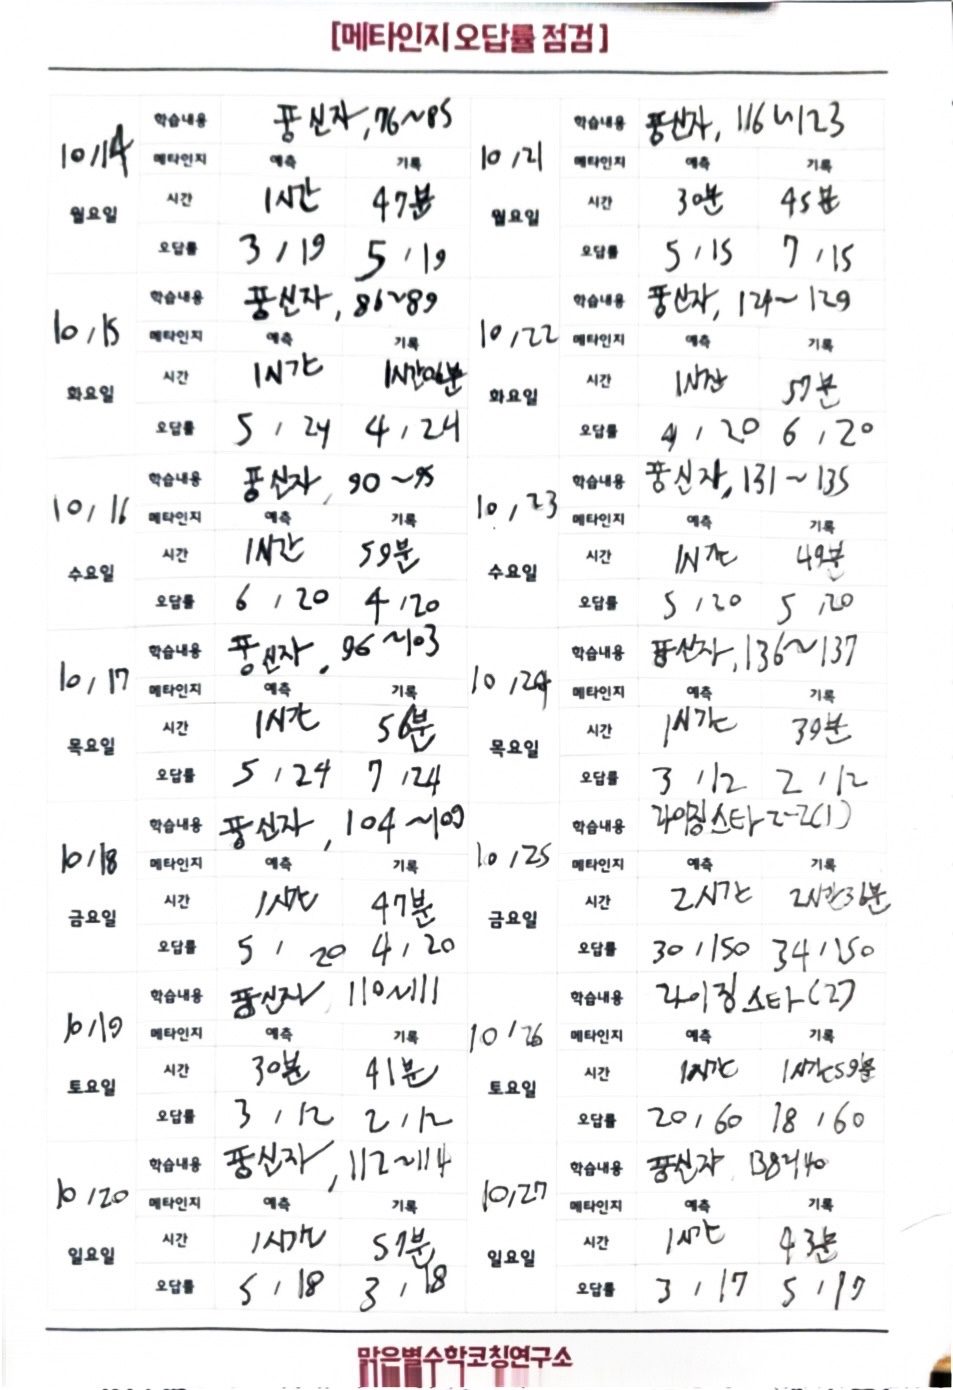 [메타인지 오답률 점검]
10/14 월요일
학습내용 풍신자, 76~85
메타인지 예측 기록
시간 1시간 47분
오답률 3/19 5/19
10/15 화요일
학습내용 풍신자, 86~89
메타인지 예측 기록
시간 1시간 1시간06분
오답률 5/24 4/24
10/16 수요일
학습내용 풍신자, 90~95
메타인지 예측 기록
시간 1시간 59분
오답률 6/20 4/20
10/17 목요일
학습내용 풍신자, 96~103
메타인지 예측 기록
시간 1시간 56분
오답률 5/24 7/24
10/18 금요일
학습내용 풍신자, 104~109
메타인지 예측 기록
시간 1시간 47분
오답률 5/20 4/20
10/19 토요일
학습내용 풍신자, 110~111
메타인지 예측 기록
시간 30분 41분
오답률 3/12 2/12
10/20 일요일
학습내용 풍신자, 112~114
메타인지 예측 기록
시간 1시간 57분
오답률 5/18 3/18
10/21 월요일
학습내용 풍신자, 116~123
메타인지 예측 기록
시간 30분 45분
오답률 5/15 7/15
10/22 화요일
학습내용 풍신자, 124~129
메타인지 예측 기록
시간 1시간 57분
오답률 4/20 6/20
10/23 수요일
학습내용 풍신자, 131~135
메타인지 예측 기록
시간 1시간 49분
오답률 5/20 5/20
10/24 목요일
학습내용 풍신자, 136~137
메타인지 예측 기록
시간 1시간 39분
오답률 3/12 2/12
10/25 금요일
학습내용 라이징스타 2-2(1)
메타인지 예측 기록
시간 2시간 2시간36분
오답률 30/150 34/150
10/26 토요일
학습내용 라이징스타(2)
메타인지 예측 기록
시간 1시간 1시간59분
오답률 20/60 18/60
10/27 일요일
학습내용 풍신자, 138~140
메타인지 예측 기록
시간 1시간 43분
오답률 3/17 5/17
맑은별수학코칭연구소